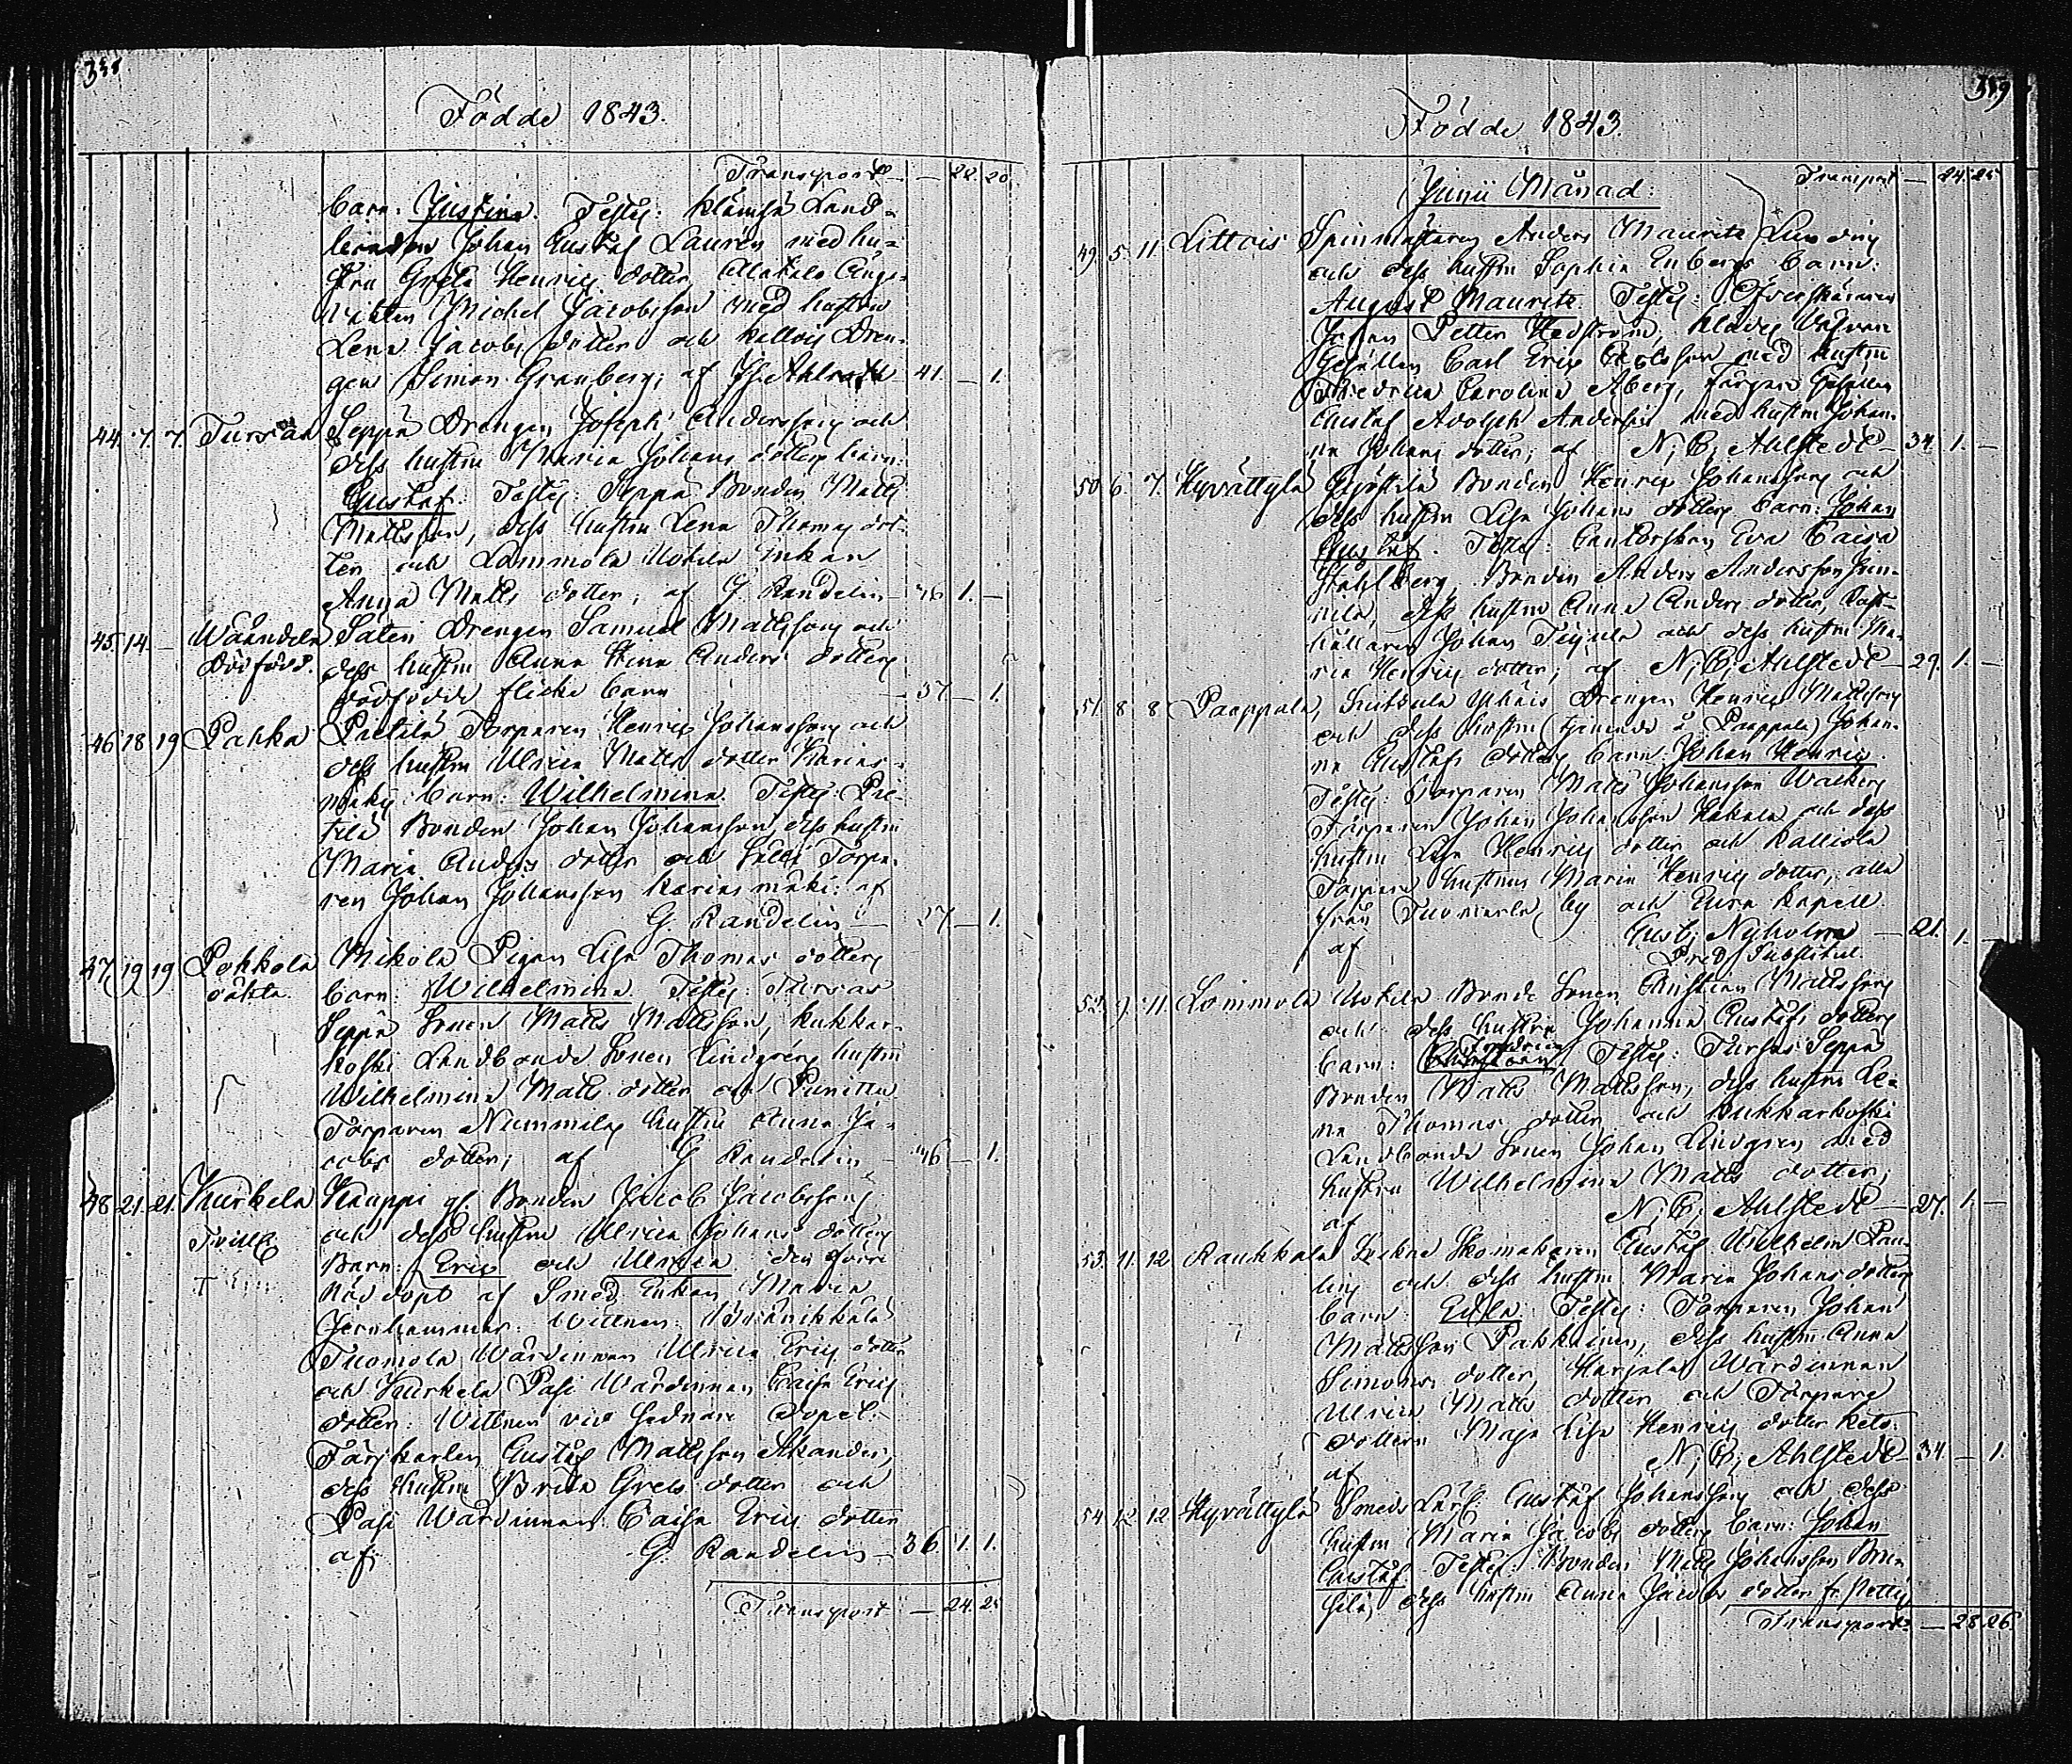 358
Födde 1843.
Transport — 22. 20
barn: Justina. Testes: Land-
bonden Johan Gustaf Laurén med hu-
stru Greta Henrics dotter,
Michel Jacobsson med hustru
Lena Jacobs dotter och Dren-
gen Simon Granberg; af 41. — 1.
44. 7. 7. Tursas Seppä Drengen Joseph Anderssons och
dess hustru Maria Johans dotters barn:
Gustaf. Testes: Seppä Bonden Matts
Mattsson, dess hustru Lena Thomas dot-
ter och Lammola Uotila Enkan
Anna Matts dotter; af G. Randelin — 46 1. —
45. 14. — Wääntelä Satei Drengen Samuel Mattssons och
Dödfödd. dess hustru Anna Stina Anders dotters
dödfödde flicke barn — 37 — 1.
46 18 19 Pahka Pietilä Torparen Henric Johanssons och
dess hustru Ulrica Matts dotter Karias-
mäkis barn: Wilhelmina. Testes: Pie-
tilä Bonden Johan Johansson, dess hustru
Maria Anders dotter och Torpa-
ren Johan Johansson Kariasmäki: af
G. Randelin — 27 — 1.
47 19 19 Pohkola Mikola Pigan Lisa Thomas dotters
oäkta. barn: Wilhelmina. Testes: Tursas
Seppä Sonen Matts Mattsson, Kukkar-
koski Landbonde Sonen Lindgréns hustru
Wilhelmina Matts dotter och Punittu
Torparen Nummilas hustru Anna Ja-
cobs dotter; af G Randelin — 46 — 1.
48 21. 21. Kurkela Kauppi gl. Bonden Jacob Jacobssons
Tvill. och dess hustru Ulrica Johans dotters
Barn: Eric och Ulrica den förre
nöddöpt af Smed Enkan Maria
Jernhammar. Wittnen:
Tuomola Wärdinnan Ulrica Erics dotter
och Kurkela Pasi Wärdinnan Caisa Erics
dotter. Wittnen vid sednare Dopet:
Gustaf Mattsson
dess hustru Brita Grels dotter och
Pasi Wärdinnan Caisa Erics dotter
af G. Randelin — 36 1. 1.
Transport — 24. 25
359
Födde 1843.
Transport — 24. 25
Junii Månad.
49. 5. 11 Littois Spinmästaren Anders Maurits
och dess hustru Sophia Enbergs barn:
August Maurits. Testes:
Johan Petter Hedström,
Gesällen Carl Eric med hustru
Fredrica Carolina Åberg, Färgare Gesällen
Gustaf Adolph Andersin med hustru Johan-
na Johans dotter; af N; G; Ahlstedt — 34. 1. —
50 6. 7. Hyvättylä Bonden Henric Johanssons och
dess hustru Lisa Johans dotters barn: Johan
Gustaf. Testes: Cantorskan Eva Caisa
Stahlberg. Bonden Anders Andersson
dess hustru Anna Anders dotter,
hållaren Johan och dess hustru Ma-
ria Henrics dotter; af N; G; Ahlstedt — 29. 1. —
51 8 8 Paappala, Drengen Henric Mattssons
och dess hustru (tjenande å Paappala) Johan-
na Gustafs dotters barn: Johan Henric.
Testes: Torparen Matts Johansson
Torparen Johan Johansson Hakala och dess
hustru Lisa Henrics dotter och Kalliola
Torpare hustrun Maria Henrics dotter, alla
från Tuomarla by och Eura Kapell
af Gust; Nyholm — 21. 1. —
Pred. Substitut.
52. 9. 11. Lammola Uotila Bonde Sonen Christian Mattssons
och dess hustru Johanna Gustafs dotters
Fredrica
barn: Testes: Tursas Seppä
Bonden Matts Mattsson, dess hustru Le-
na Thomas dotter och Kukkarkoski
Landbonde Sonen Johan Lindgren med
hustru Wilhelmina Matts dotter;
af N; G; Ahlstedt — 27. 1. —
53. 11. 12 Raukkala Skomakaren Gustaf Wilhelm
och dess hustru Maria Johans dotters
barn: Edla. Testes: Torparen Johan
Mattsson Pakkainen, dess hustru Anna
Simons dotter, Harjala Wärdinnan
Ulrica Matts dotter och Torpare
dottern Maja Lisa Henrics dotter
af N; G; Ahlstedt — 34. — 1.
54 12 12 Hyvättylä Smeds Lärl. Gustaf Johanssons och dess
hustru Maria Jacobs dotters barn: Johan
Gustaf. Testes: Bonden Matts Johansson
dess hustru Anna Jacobs dotter
Transport — 28 26